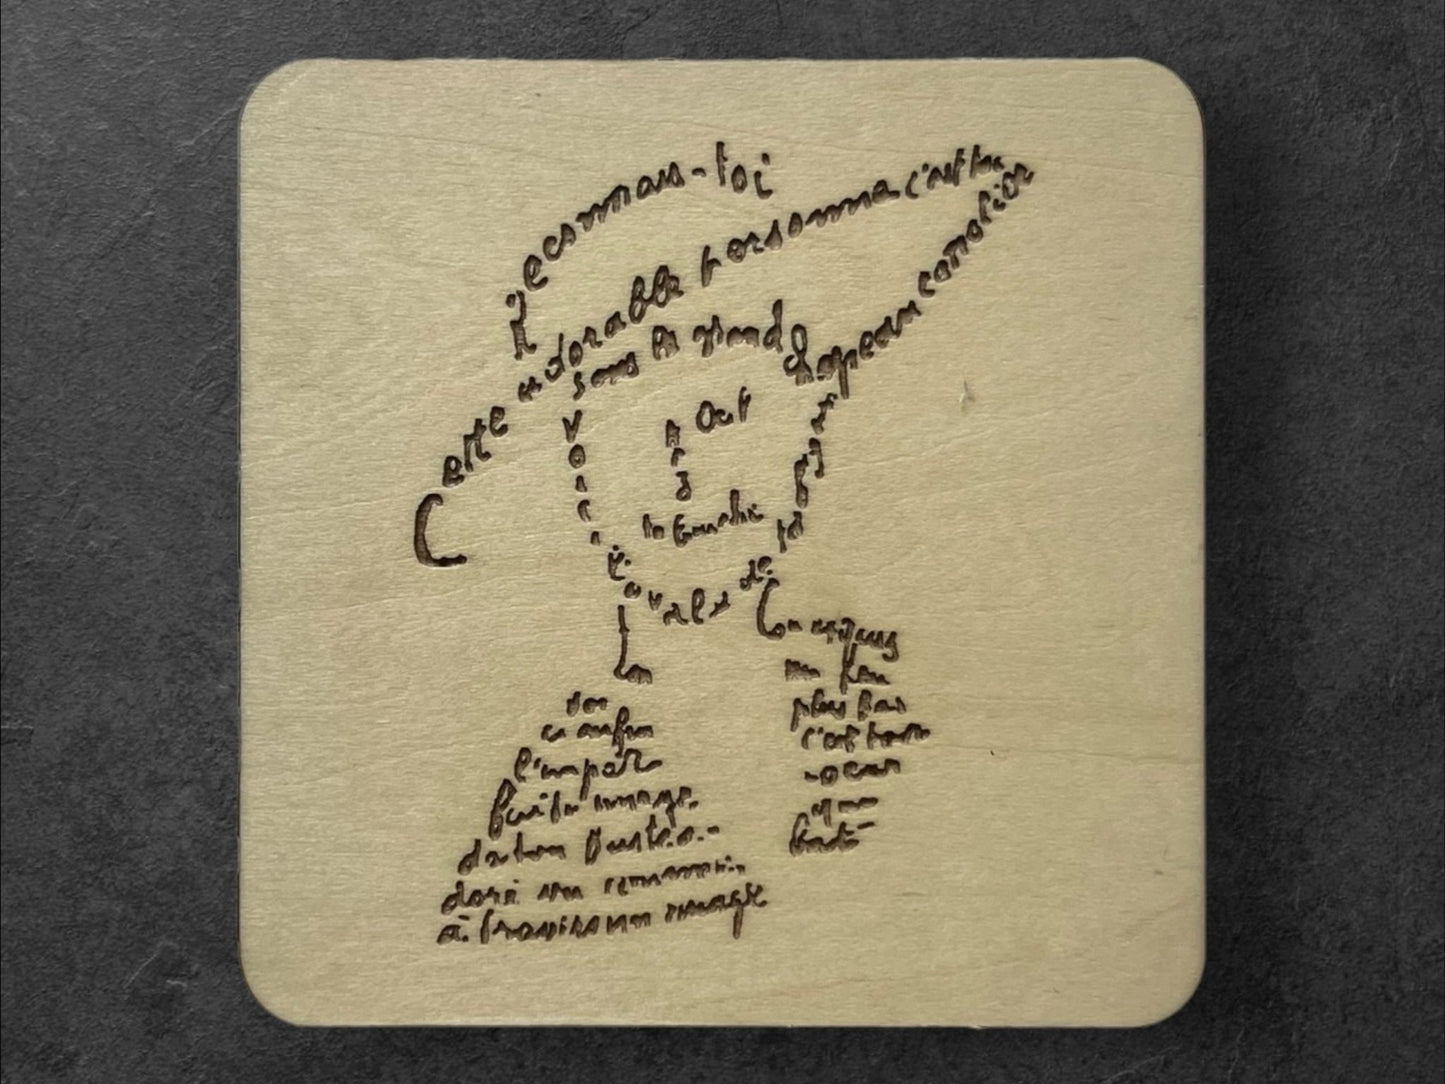 Reconnais-toi
Cette adorable personne c'est toi
sous le grand chapeau canotier
Oeil
la bouche
Voici l'ovale de ta figure
Cou exquis
un peu
plus bas
c'est ton
coeur
qui
bat
Voi
ci enfin
l'impar
faite image
de ton buste a-
doré vu comme
à travers un nuage